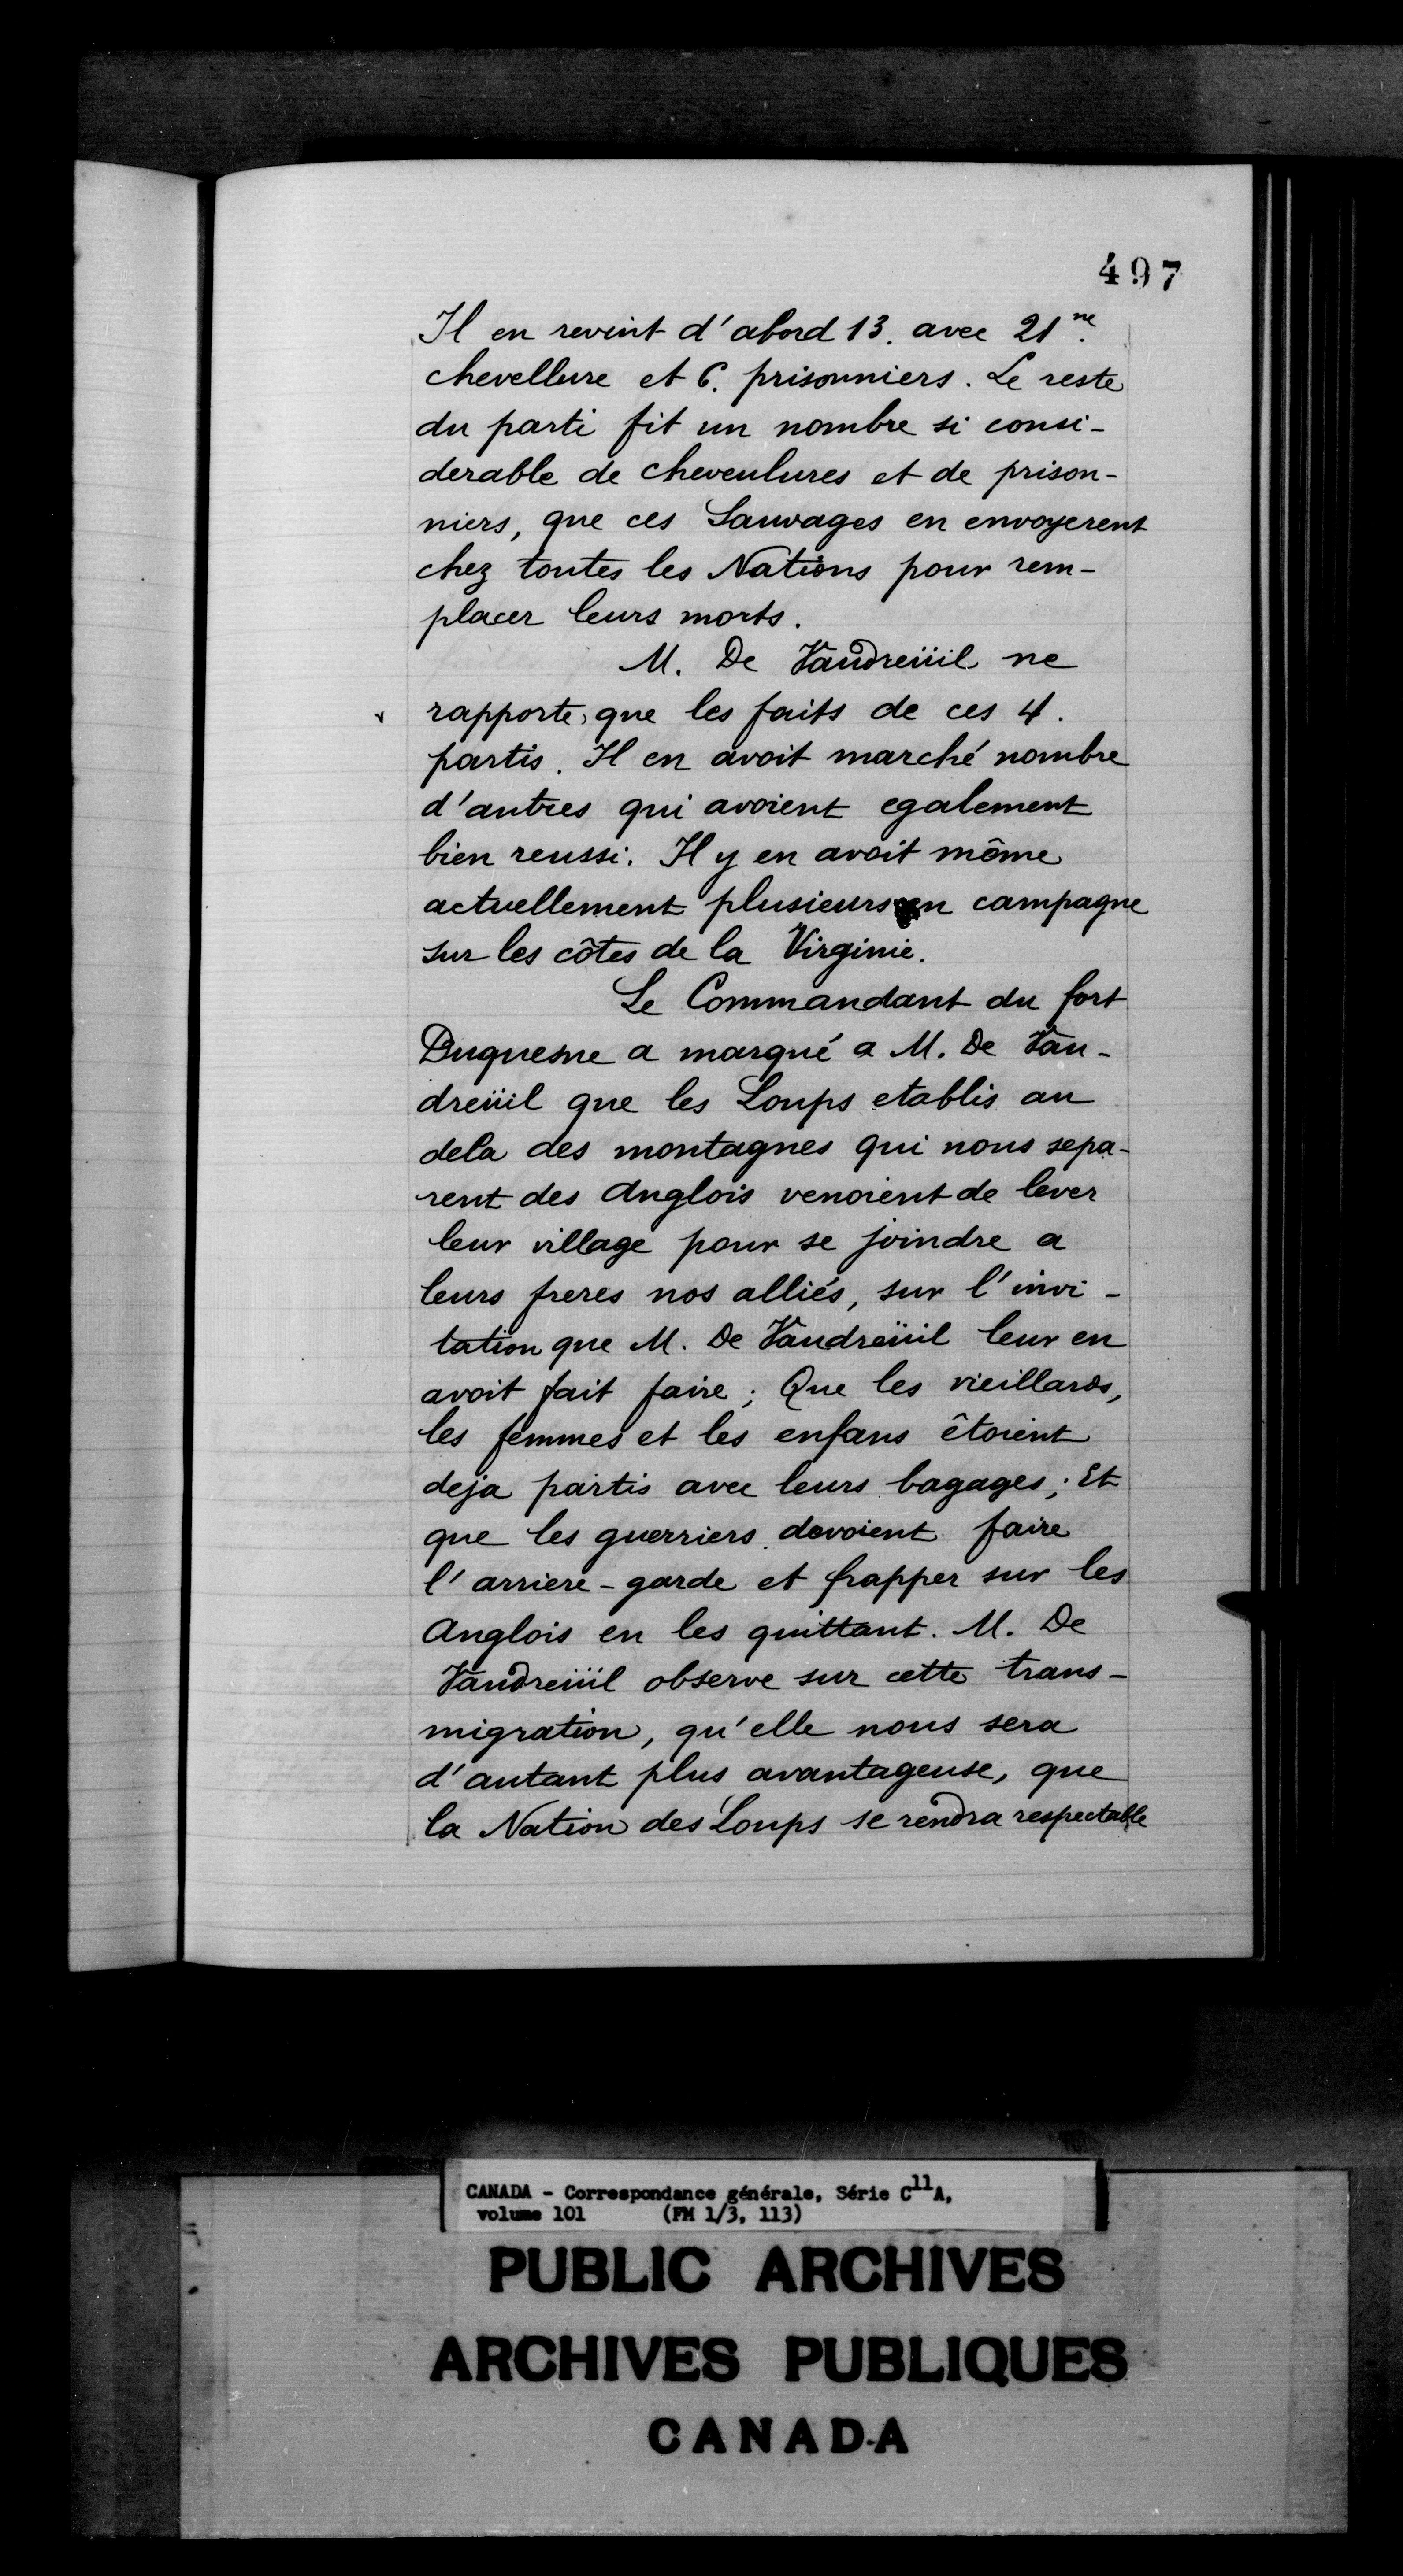 497
Il en revint d'abord 13. avec 21ne.
chevellure et 6. prisonniers. Le reste
du parti fit un nombre si consi-
derable de cheveulures et de prison-
niers, que ces Sauvages en envoyerent
chez toutes les Nations pour rem-
placer leurs morts.
M. De Vaudreüil ne
rapporte que les faits de ces 4.
partis. Il en avoit marché nombre
d'autres qui avoient egalement
bien reussi. Il y en avoit même
actuellement plusieurs en campagne
sur les côtes de la Virginie.
Le Commandant du fort
Duquesne a marqué a M. De Vau-
dreüil que les Loups etablis au
dela des montagnes qui nous sepa-
rent des Anglois venoient de lever
leur village pour se joindre a
leurs freres nos alliés, sur l'invi-
tation que M. De Vaudreüil leur en
avoit fait faire; Que les vieillards,
les femmes et les enfans êtoient
deja partis avec leurs bagages; Et
que les guerriers devoient faire
l'arriere-garde et frapper sur les
Anglois en les quittant. M. De
Vaudreüil observe sur cette trans-
migration, qu'elle nous sera
d'autant plus avantageuse, que
la Nation des Loups se rendra respectable
CANADA - Correspondance générale, Série C11A,
volume 101 (FM 1/3, 113)
PUBLIC ARCHIVES
ARCHIVES PUBLIQUES
CANADA